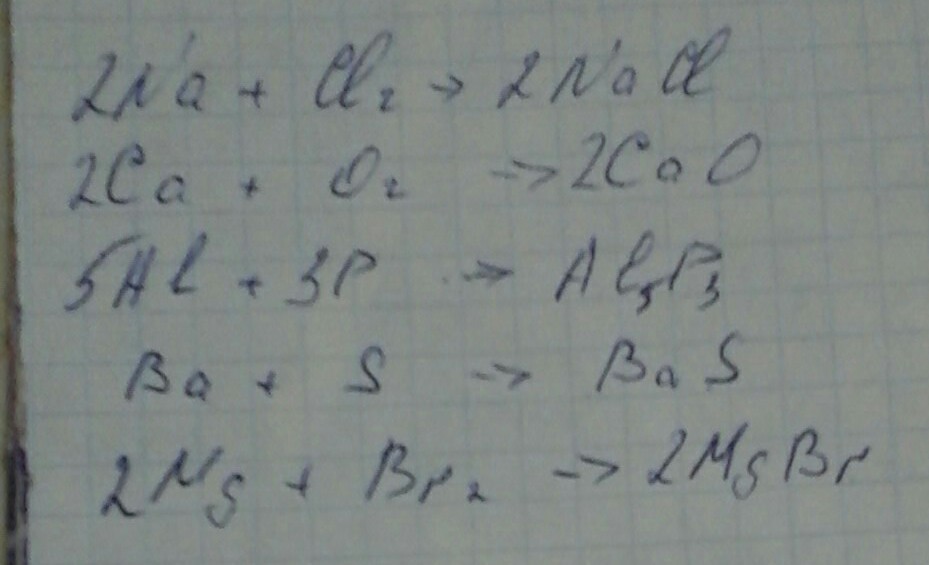 2Na + Cl₂ → 2NaCl
2Ca + O₂ → 2CaO
5Al + 3P → Al₅P₃
Ba + S → BaS
2Mg + Br₂ → 2MgBr